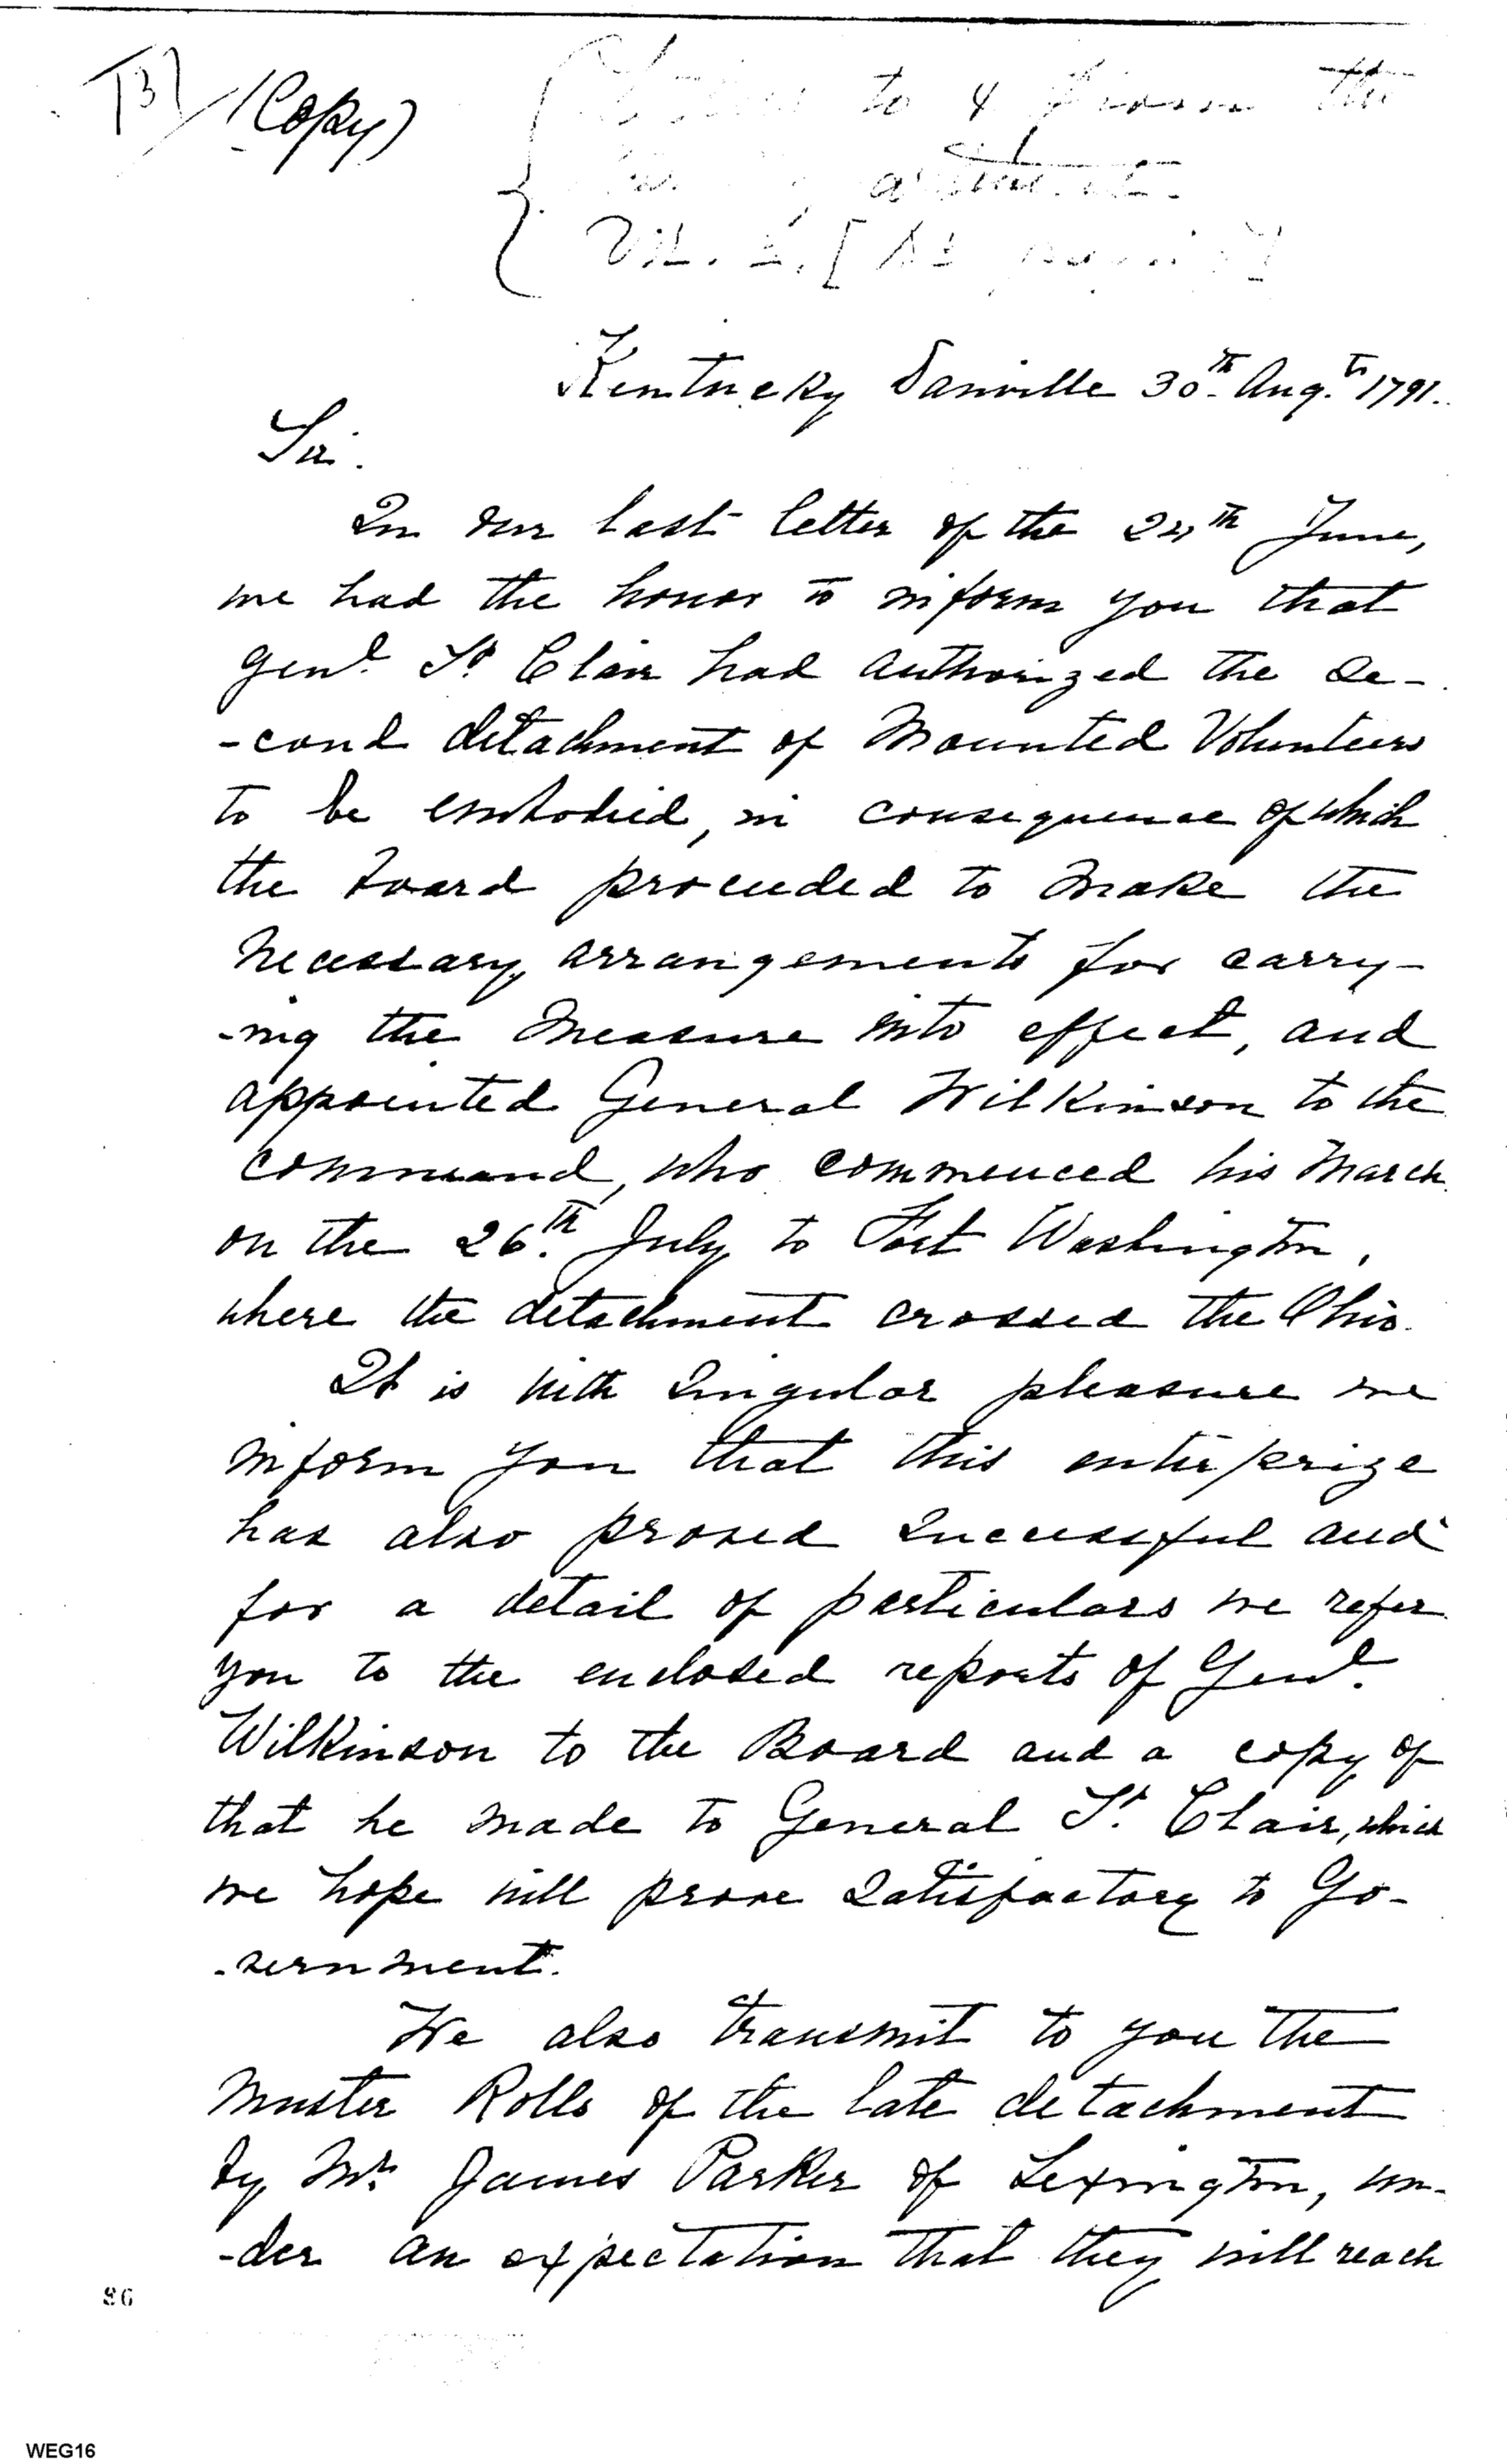 (Copy)
to & from the
Kentucky Danville 30th Aug.th 1791.
Sir.
In our last letter of the 24th June,
we had the honor to inform you that
Genl. St. Clair had authorized the se-
-cond detachment of Mounted Volunteers
to be embodied, in consequence of which
the board proceeded to make the
necessary arrangements for carry-
-ing the measure into effect, and
appointed General Wilkinson to the
command, who commenced his march
on the 26th. July to Fort Washington,
where the detachment crossed the Ohio.
It is with singular pleasure we
inform you that this enterprize
has also proved successful and
for a detail of particulars we refer
you to the enclosed reports of Genl.
Wilkinson to the Board and a copy of
that he made to General St. Clair, which
we hope will prove satisfactory to Go-
-vernment.
We also transmit to you the
Muster Rolls of the late detachment
by Mr. James Parker of Lexington, un-
-der an expectation that they will reach
86
WEG16